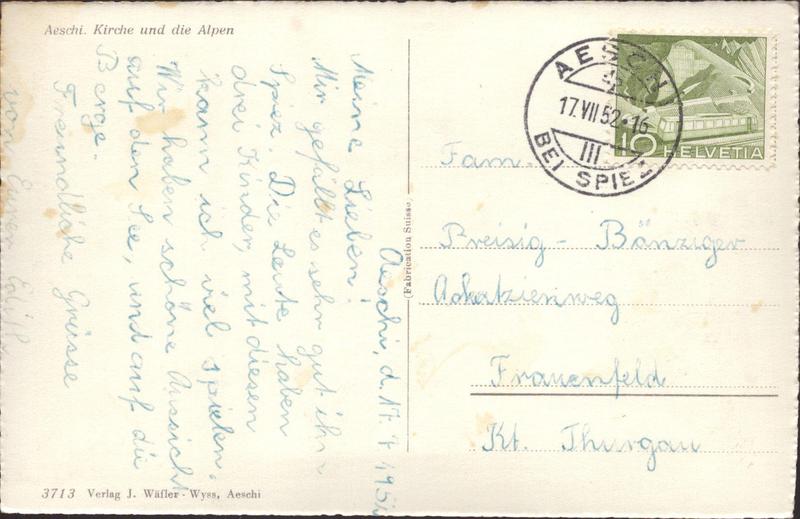 Aeschi. Kirche und die Alpen
Aeschi, d. 17. 7. 1952
Meine Lieben!
Mir gefällt es sehr gut in
Spiez. Die Leute haben
drei Kinder, mit diesen
kann ich viel spielen.
Wir haben schöne Aussicht
auf den See, und auf die
Berge.
Freundliche Grüsse
von Eurer Edith
3713 Verlag J. Wäfler - Wyss, Aeschi
(Fabrication Suisse)
AESCHI
17.VII.52-16
III
BEI SPIEZ
10 HELVETIA
Fam.
Breisig - Bänziger
Ackatzienweg
Frauenfeld
Kt. Thurgau